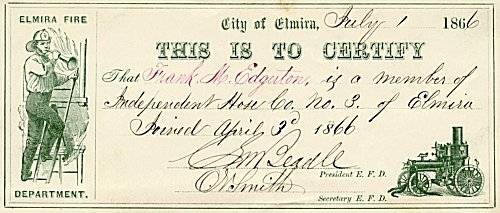 ELMIRA FIRE
DEPARTMENT.
City of Elmira, July 1 1866
THIS IS TO CERTIFY
That Frank M. Edgerton, is a member of
Independent Hose Co. No. 3. of Elmira
Joined April 3d 1866
President E. F. D.
Smith
Secretary E. F. D.